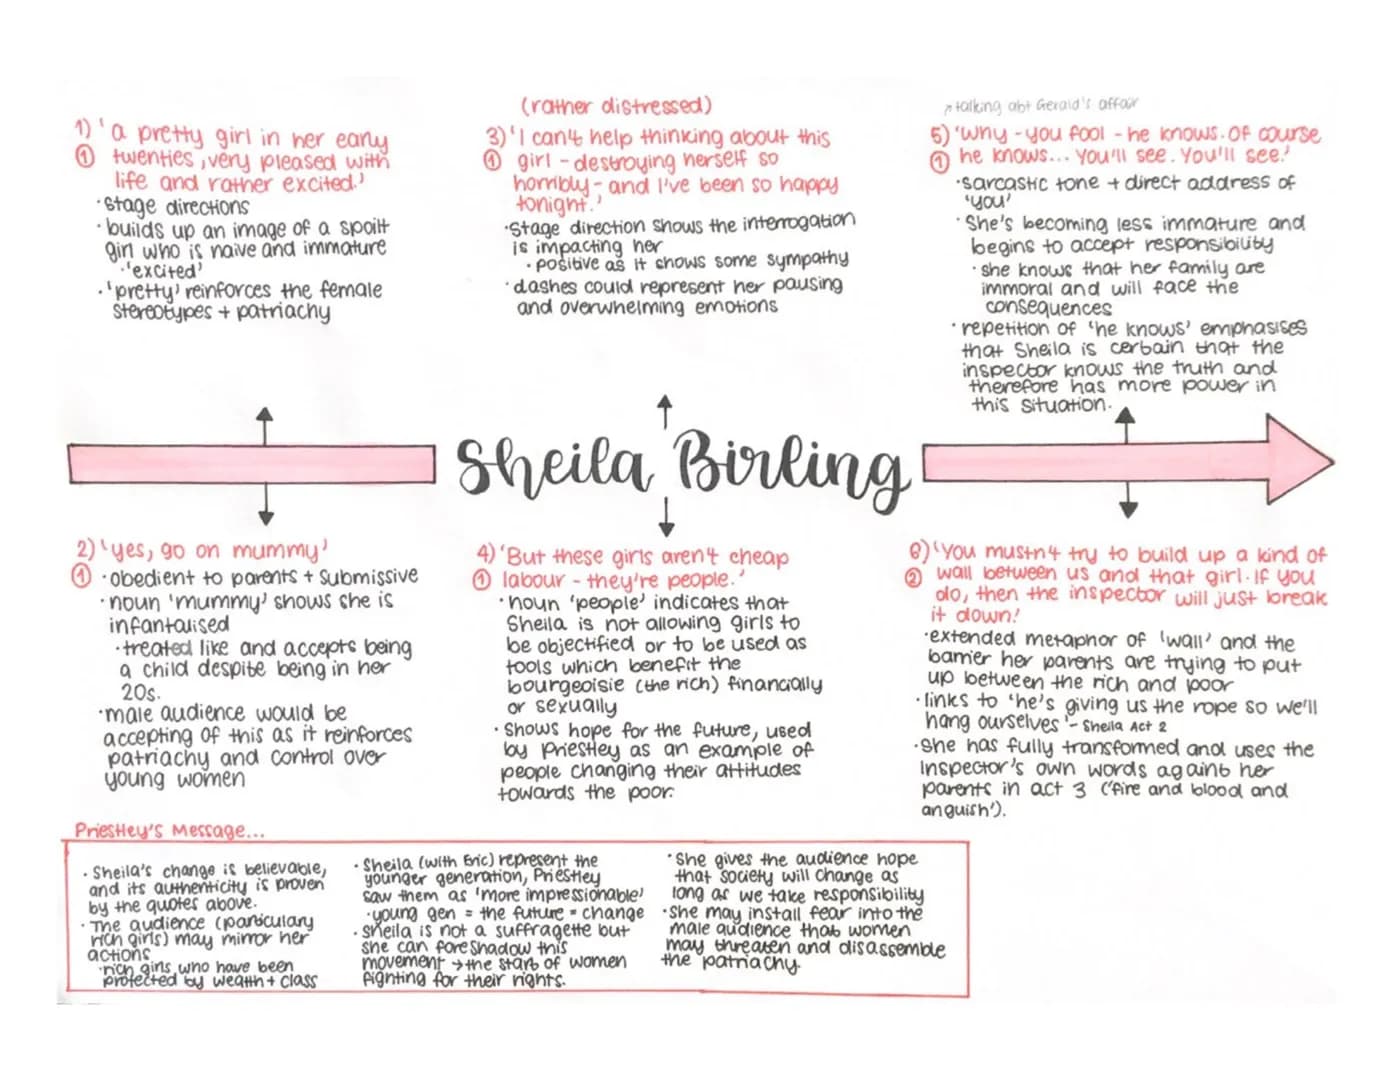 1) 'a pretty girl in her early
① twenties, very pleased with
life and rather excited.'
·stage directions
·builds up an image of a spoilt
girl who is naive and immature
·'excited'
·'pretty' reinforces the female
stereotypes + patriachy
(rather distressed)
3) 'I can't help thinking about this
① girl - destroying herself so
horribly - and I've been so happy
tonight.'
·Stage direction shows the interrogation
is impacting her
·positive as it shows some sympathy
·dashes could represent her pausing
and overwhelming emotions
↗talking abt Gerald's affair
5) 'Why - you fool - he knows. Of course
① he knows... You'll see. You'll see.'
·sarcastic tone + direct address of
'you'
·She's becoming less immature and
begins to accept responsibility
·she knows that her family are
immoral and will face the
consequences
·repetition of 'he knows' emphasises
that Sheila is certain that the
inspector knows the truth and
therefore has more power in
this situation.
Sheila Birling
2) 'yes, go on mummy'
① ·obedient to parents + submissive
·noun 'mummy' shows she is
infantalised
·treated like and accepts being
a child despite being in her
20s.
·male audience would be
accepting of this as it reinforces
patriachy and control over
young women
4) 'But these girls aren't cheap
① labour - they're people.'
·noun 'people' indicates that
Sheila is not allowing girls to
be objectified or to be used as
tools which benefit the
bourgeoisie (the rich) financially
or sexually
·Shows hope for the future, used
by Priestley as an example of
people changing their attitudes
towards the poor.
6) 'You mustn't try to build up a kind of
② wall between us and that girl. If you
do, then the inspector will just break
it down.'
·extended metaphor of 'wall' and the
barrier her parents are trying to put
up between the rich and poor
·links to 'he's giving us the rope so we'll
hang ourselves' - Sheila Act 2
·She has fully transformed and uses the
Inspector's own words againt her
parents in act 3 ('fire and blood and
anguish').
Priestley's Message...
·Sheila's change is believable,
and its authenticity is proven
by the quotes above.
·The audience (particulary
rich girls) may mirror her
actions
·rich girls who have been
protected by wealth + class
·Sheila (with Eric) represent the
younger generation, Priestley
saw them as 'more impressionable'
·young gen = the future = change
·Sheila is not a suffragette but
she can foreshadow this
movement → the start of women
fighting for their rights.
·She gives the audience hope
that society will change as
long as we take responsibility
·She may install fear into the
male audience that women
may threaten and disassemble
the patriachy.